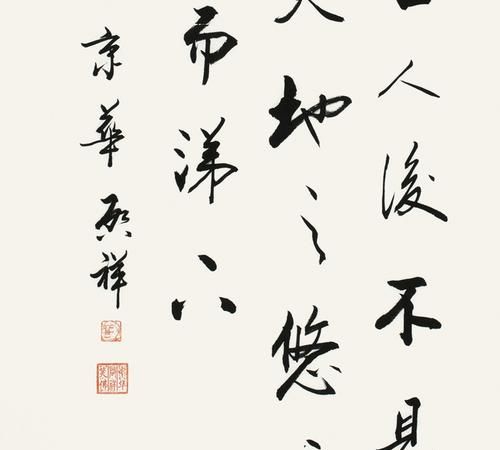 人後不見
天地之悠
而涕下
京華祥